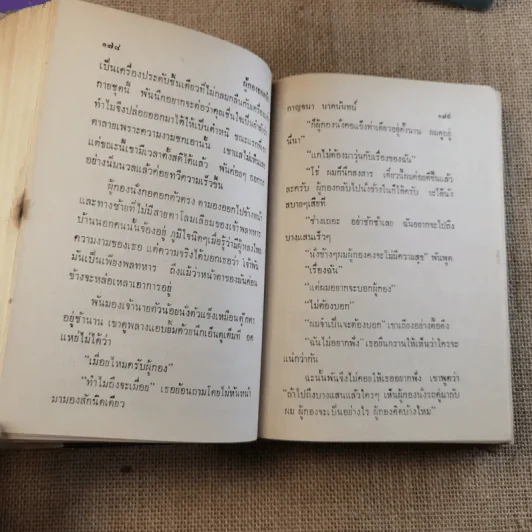 ๑๗๘
ผู้กอง
เป็นเครื่องประดับชิ้นเดียวที่ไม่กลมกลืนกับเครื่อง
กายชุดนี้ พันนึกอยากจะ
ทำไมจึงปล่อยออกมาได้ให้เป็นตำหนิ
ตาลายเพราะความงามชกเอานั้น
แต่ขณะนี้เขามีเวลาตั้งสติได้แล้ว พันค่อยๆ
อย่างนิ่มนวลแล้วค่อยทวีความเร็วขึ้น
ผู้กองนั่งกอดอกตัวตรง ตามองออกไปข้างหน้า
และทางซ้ายที่ไม่มีสายตาโลมเลียมของเจ้าพลทหาร
บ้านนอกคนนั้นจ้องอยู่ ภูมิใจนิดๆเมื่อรู้ว่ามีผู้หลงไหล
ความงามของเธอ แต่ความจริงได้บอกเธอว่า เจ้าพัน
มันเป็นเพียงพลทหาร ถึงแม้ว่าหน้าตาของมันค่อน
ข้างจะหล่อเหลาเอาการอยู่
พันมองเจ้านายตัวน้อยนั่งตัวแข็งเหมือนตุ๊กตา
อยู่ช้านาน เขาดูพลางแอบยิ้มด้วยนึกเอ็นดูเต็มที อด
แหย่ไม่ได้ว่า
"เมื่อยไหมครับผู้กอง"
"ทำไมถึงจะเมื่อย" เธอย้อนถามโดยไม่หันหน้า
มามองสักนิดเดียว
กาญจนา นาคนันทน์
๑๗๙
"ก็ผู้กองนั่งคอแข็งท่าเดียวอยู่ตั้งนาน ผมดูอยู่
นี่นา"
"แกไม่ต้องมาวุ่นกับเรื่องของฉัน"
"โธ่ ผมก็นึกสงสาร เดี๋ยวนี้ผมค่อยดีขึ้นแล้ว
ละครับ ผู้กองกลับไปนั่งข้างในก็ได้ครับ จะได้นั่ง
สบายๆเสียที"
"ช่างเถอะ อย่าชักช้าเลย ฉันอยากจะไปถึง
บางแสนเร็วๆ"
"นั่งช้างๆผมผู้กองคงจะไม่มีความสุข" พันพูด
"เรื่องฉัน"
"แต่ผมอยากจะบอกผู้กอง"
"ไม่ต้องบอก"
"ผมจำเป็นจะต้องบอก" เขาเถียงอย่างดื้อดึง
"ฉันไม่อยากฟัง" เธอยืนกรานให้เห็นว่าใครจะ
แน่กว่ากัน
ฉะนั้นพันจึงไม่คอยให้เธออยากฟัง เขาพูดว่า
"ถ้าไปถึงบางแสนแล้วใครๆ เห็นผู้กองนั่งรถคู่มากับ
ผม ผู้กองจะเป็นอย่างไร ผู้กองคิดบ้างไหม"